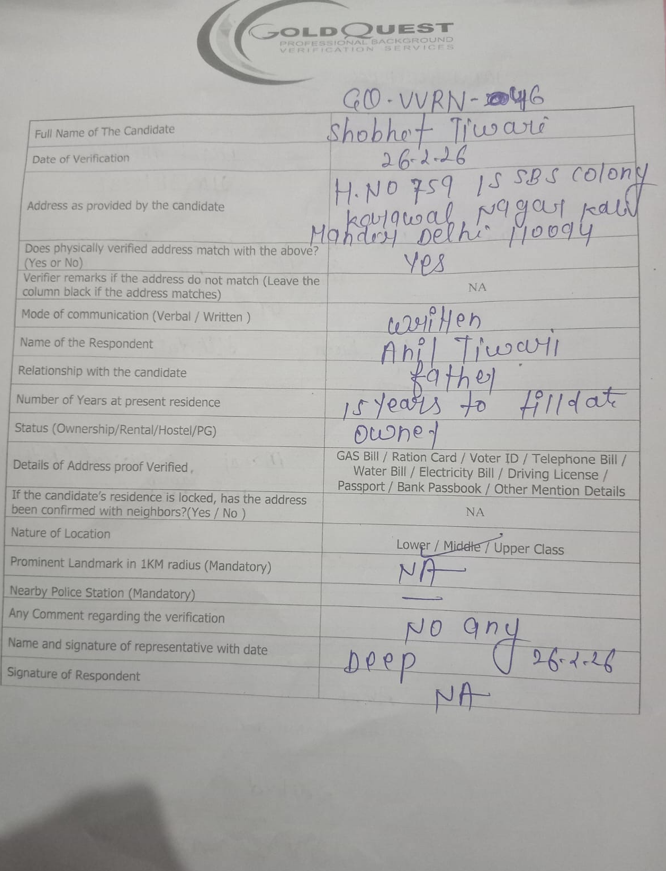 GOLDQUEST
PROFESSIONAL BACKGROUND
VERIFICATION SERVICES
GQ-VVRN-46
Full Name of The Candidate Shobhet Tiwari
Date of Verification 26-2-26
Address as provided by the candidate H.NO 759 15 SBS Colony
Nagar
Delhi 110094
Does physically verified address match with the above?
(Yes or No) Yes
Verifier remarks if the address do not match (Leave the
column black if the address matches) NA
Mode of communication (Verbal / Written ) Written
Name of the Respondent Anil Tiwari
Relationship with the candidate father
Number of Years at present residence 15 years to tilldate
Status (Ownership/Rental/Hostel/PG) Owner
Details of Address proof Verified. GAS Bill / Ration Card / Voter ID / Telephone Bill /
Water Bill / Electricity Bill / Driving License /
Passport / Bank Passbook / Other Mention Details
If the candidate's residence is locked, has the address
been confirmed with neighbors?(Yes / No ) NA
Nature of Location Lower / Middle / Upper Class
Prominent Landmark in 1KM radius (Mandatory) NA
Nearby Police Station (Mandatory) —
Any Comment regarding the verification NO any
Name and signature of representative with date Deep 26-2-26
Signature of Respondent NA